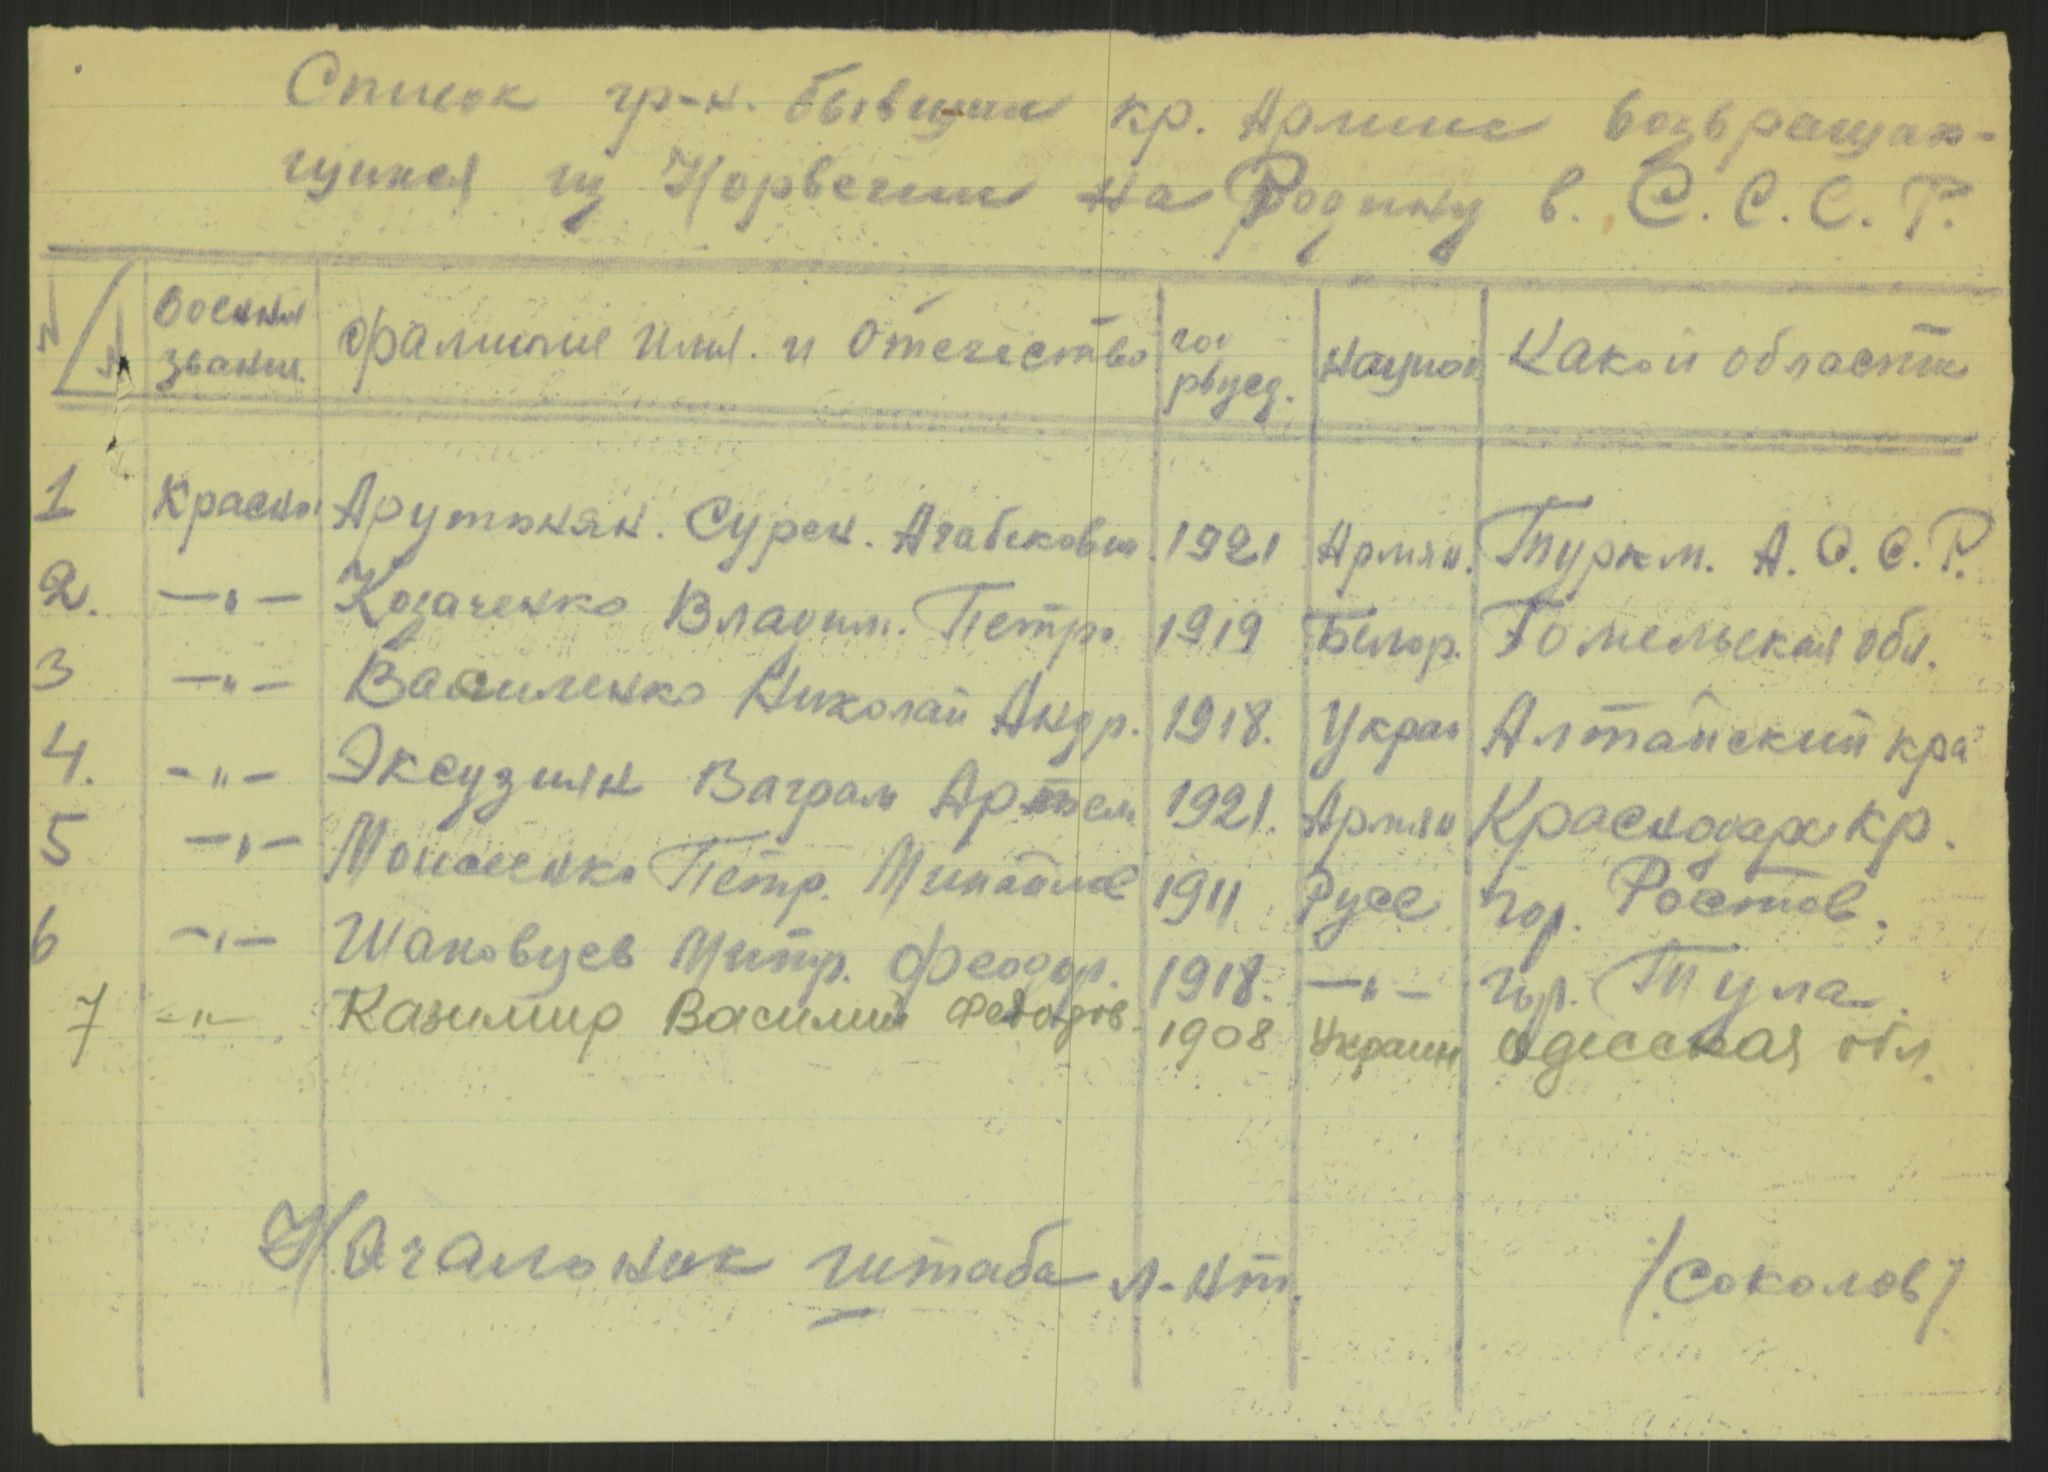 Список гр-н. бывших кр. Армии возвращаю-
щихся из Норвегии на Родину в. С. С. С. Р.
N/N Военная звание. Фамилие Имя. и Отечество год рожд. Национ Какой области
1 Красно Арутюнян. Сурен. Агабекович. 1921 Армян. Туркм. А. С. С. Р.
2. —"— Козаченко Владим. Петро 1919 Белор. Гомельская обл.
3 —"— Василенко Николай Андр. 1918. Украи Алтайский кра
4. —"— Эксузиян Ваграм Артем 1921. Армян Краснодарх кр.
5 —"— Моисеенко Петр. Михайло 1911 Русс гор. Ростов.
6 —"— Шаховцев Митр. Феодор. 1918. —"— гор. Тула.
7 —"— Казимир Василий Федоров. 1908 Украин Одесская обл.
Начальник штаба л-нт. /Соколов/